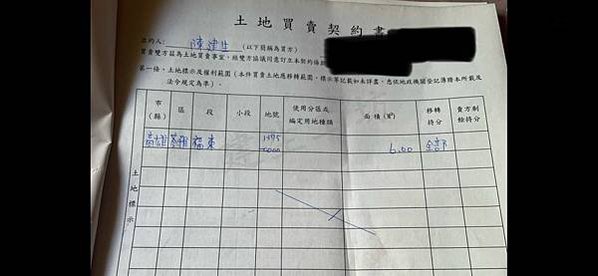 土地買賣契約書
立約人：陳建生（以下簡稱為買方）
買賣雙方茲為土地買賣事宜，經雙方協議同意訂立本契約條款
第一條、土地標示及權利範圍（本件買賣土地應移轉範圍、標示等記載如未詳盡，悉依地政機關登記簿謄本所載及
法令規定為準）。
市（縣） 區 段 小段 地號 使用分區或編定用地種類 面積（㎡） 移轉持分 賣方剩餘持分
高雄 福東 6.00 全部
土地標示